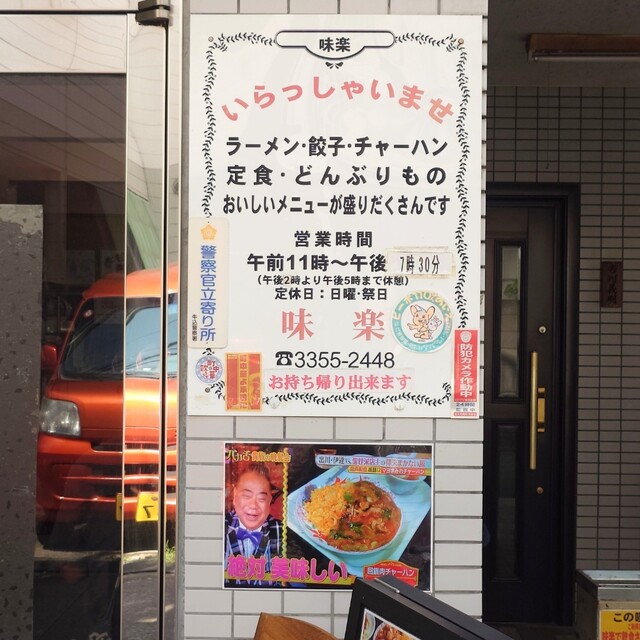 味楽
いらっしゃいませ
ラーメン・餃子・チャーハン
定食・どんぶりもの
おいしいメニューが盛りだくさんです
営業時間
午前11時～午後 7時30分
(午後2時より午後5時まで休憩)
定休日：日曜・祭日
味楽
☎3355-2448
お持ち帰り出来ます
警察官立寄り所
牛込警察署
防犯カメラ作動中
絶対美味しい
回鍋肉チャーハン
7
この